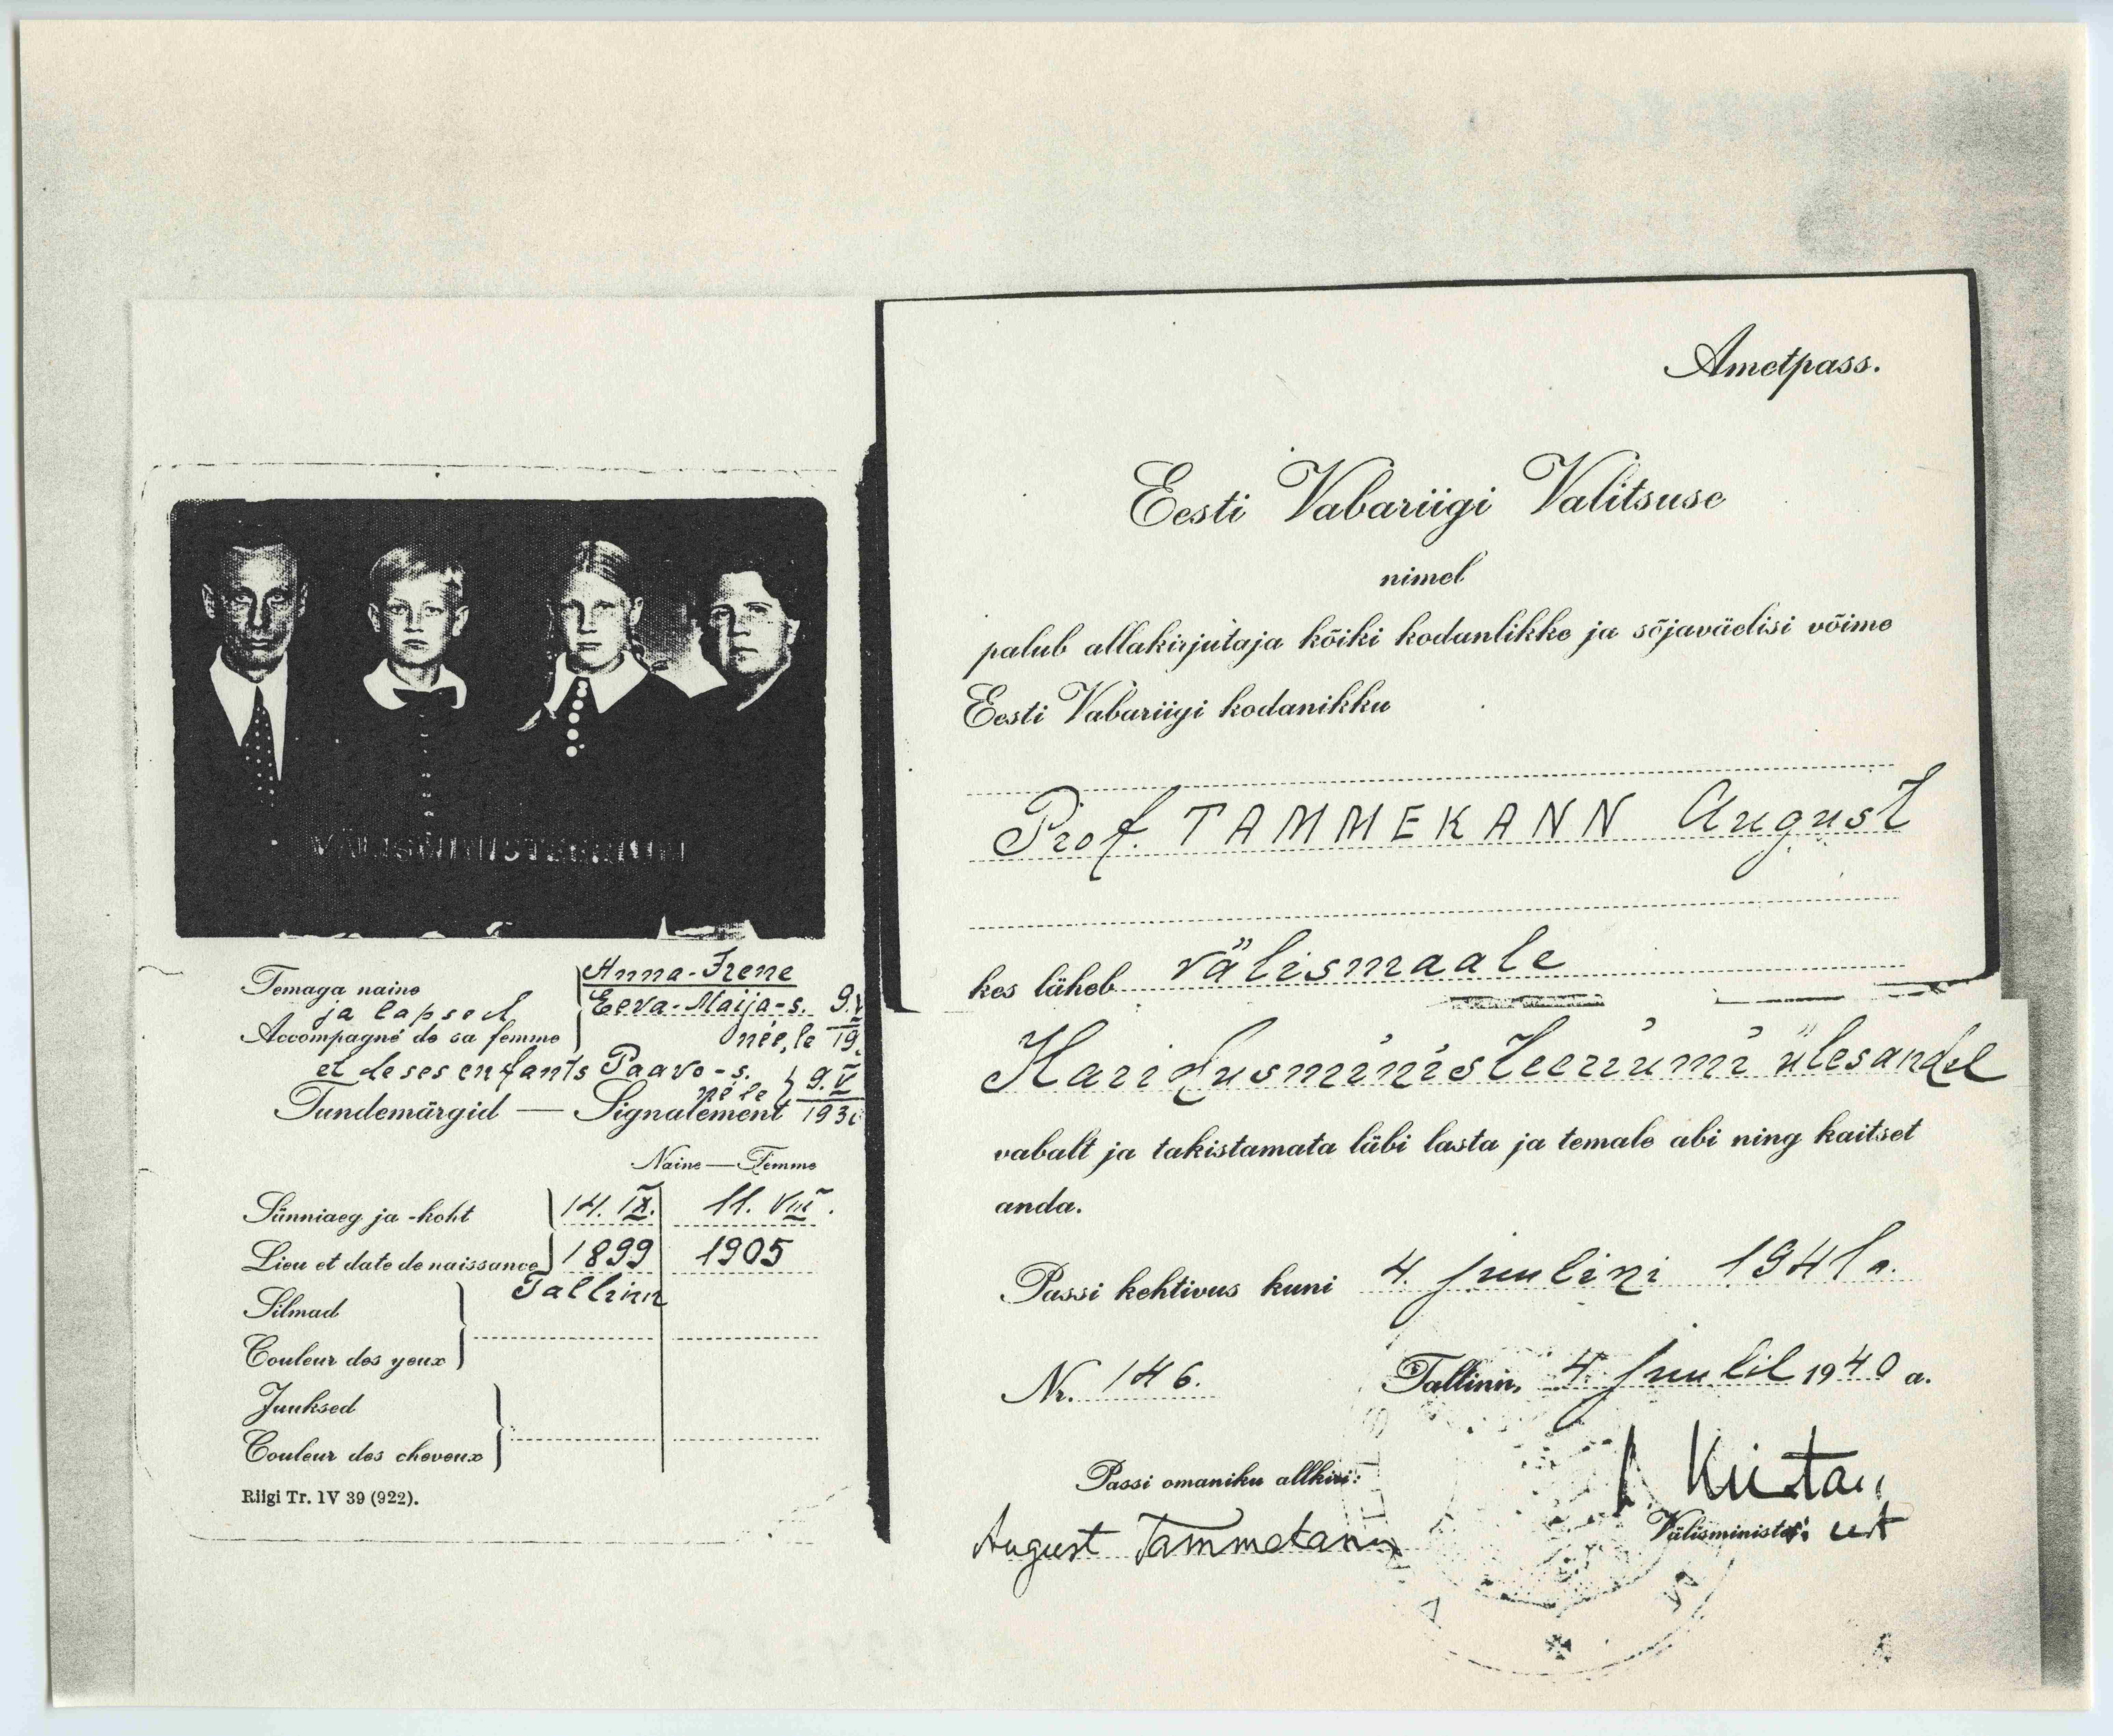 VÄLISMINISTEERIUM
Temaga naine
ja lapsed
Accompagné de sa femme
et de ses enfants
Anna-Irene
Eeva-Maija-s. 9.V
née, le 19
Paavo-s.
né le } 9.V
193
Tundemärgid — Signalement
Naine — Femme
Sünniaeg ja -koht
Lieu et date de naissance
14. IX. 11. VIII.
1899 1905
Tallinn
Silmad
Couleur des yeux
Juuksed
Couleur des cheveux
Riigi Tr. IV 39 (922).
Ametpass.
Eesti Vabariigi Valitsuse
nimel
palub allakirjutaja kõiki kodanlikke ja sõjaväelisi võime
Eesti Vabariigi kodanikku
Prof. TAMMEKANN August
kes läheb välismaale
Haridusministeeriumi ülesandel
vabalt ja takistamata läbi lasta ja temale abi ning kaitset
anda.
Passi kehtivus kuni 4. juulini 1941 a.
Nr. 146. Tallinn, 4. juulil 1940 a.
Passi omaniku allkiri:
August Tammekann
Välisministri